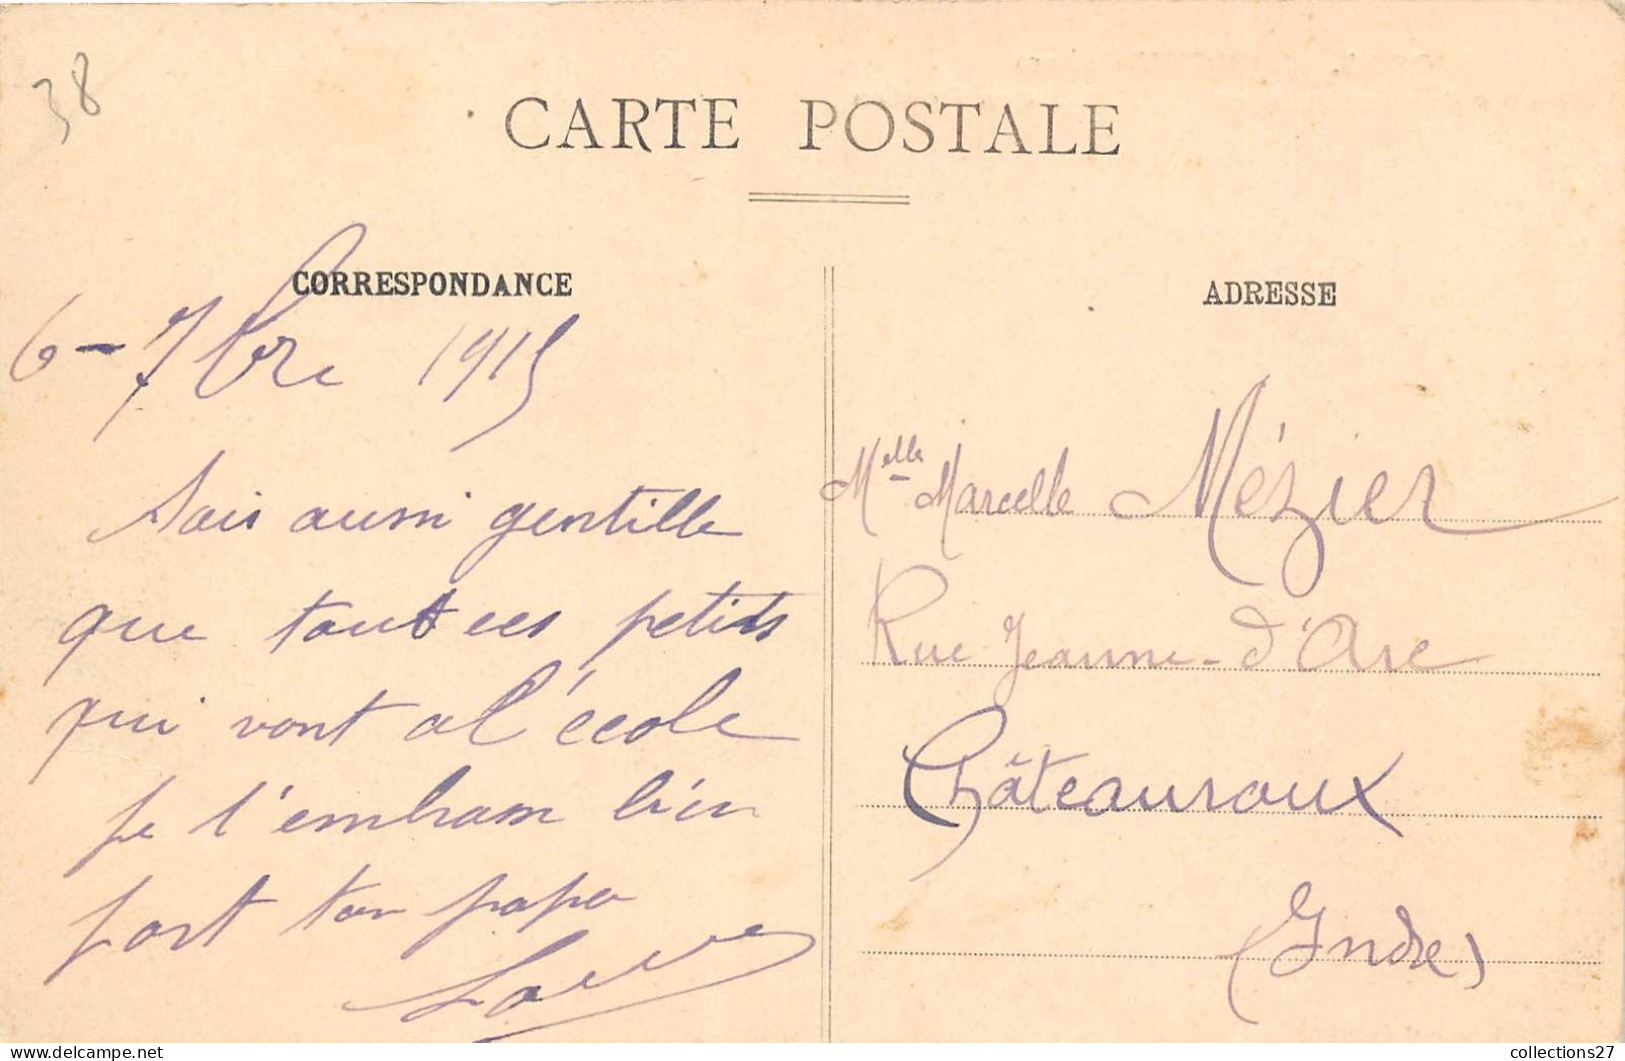 38
CARTE POSTALE
CORRESPONDANCE
6 - 7bre 1915
Sois aussi gentille
que tout ces petits
qui vont a l'école
Je t'embrasse bien
fort ton papa
ADRESSE
Melle Marcelle Mézier
Rue Jeanne-d'Arc
Châteauroux
(Indre)
collections27